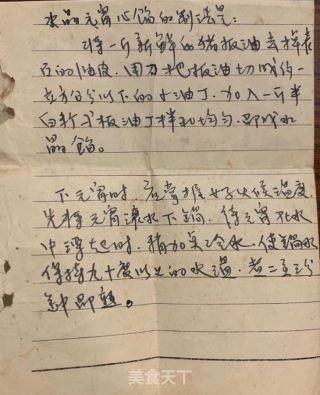 水晶元宵心馅的制法是:
将一斤新鲜的猪板油去掉表
面的油皮,用刀把板油切成约一
立方公分以下的小油丁,加入一斤半
白
板油丁拌和均匀,即成水
晶馅。
下元宵时,应掌握好火候温度,
先将元宵滚水下锅,待元宵在水
中浮起时,稍加点冷水,使锅水
保持九十度以上的水温,煮二至三分
钟即熟。
美食天下